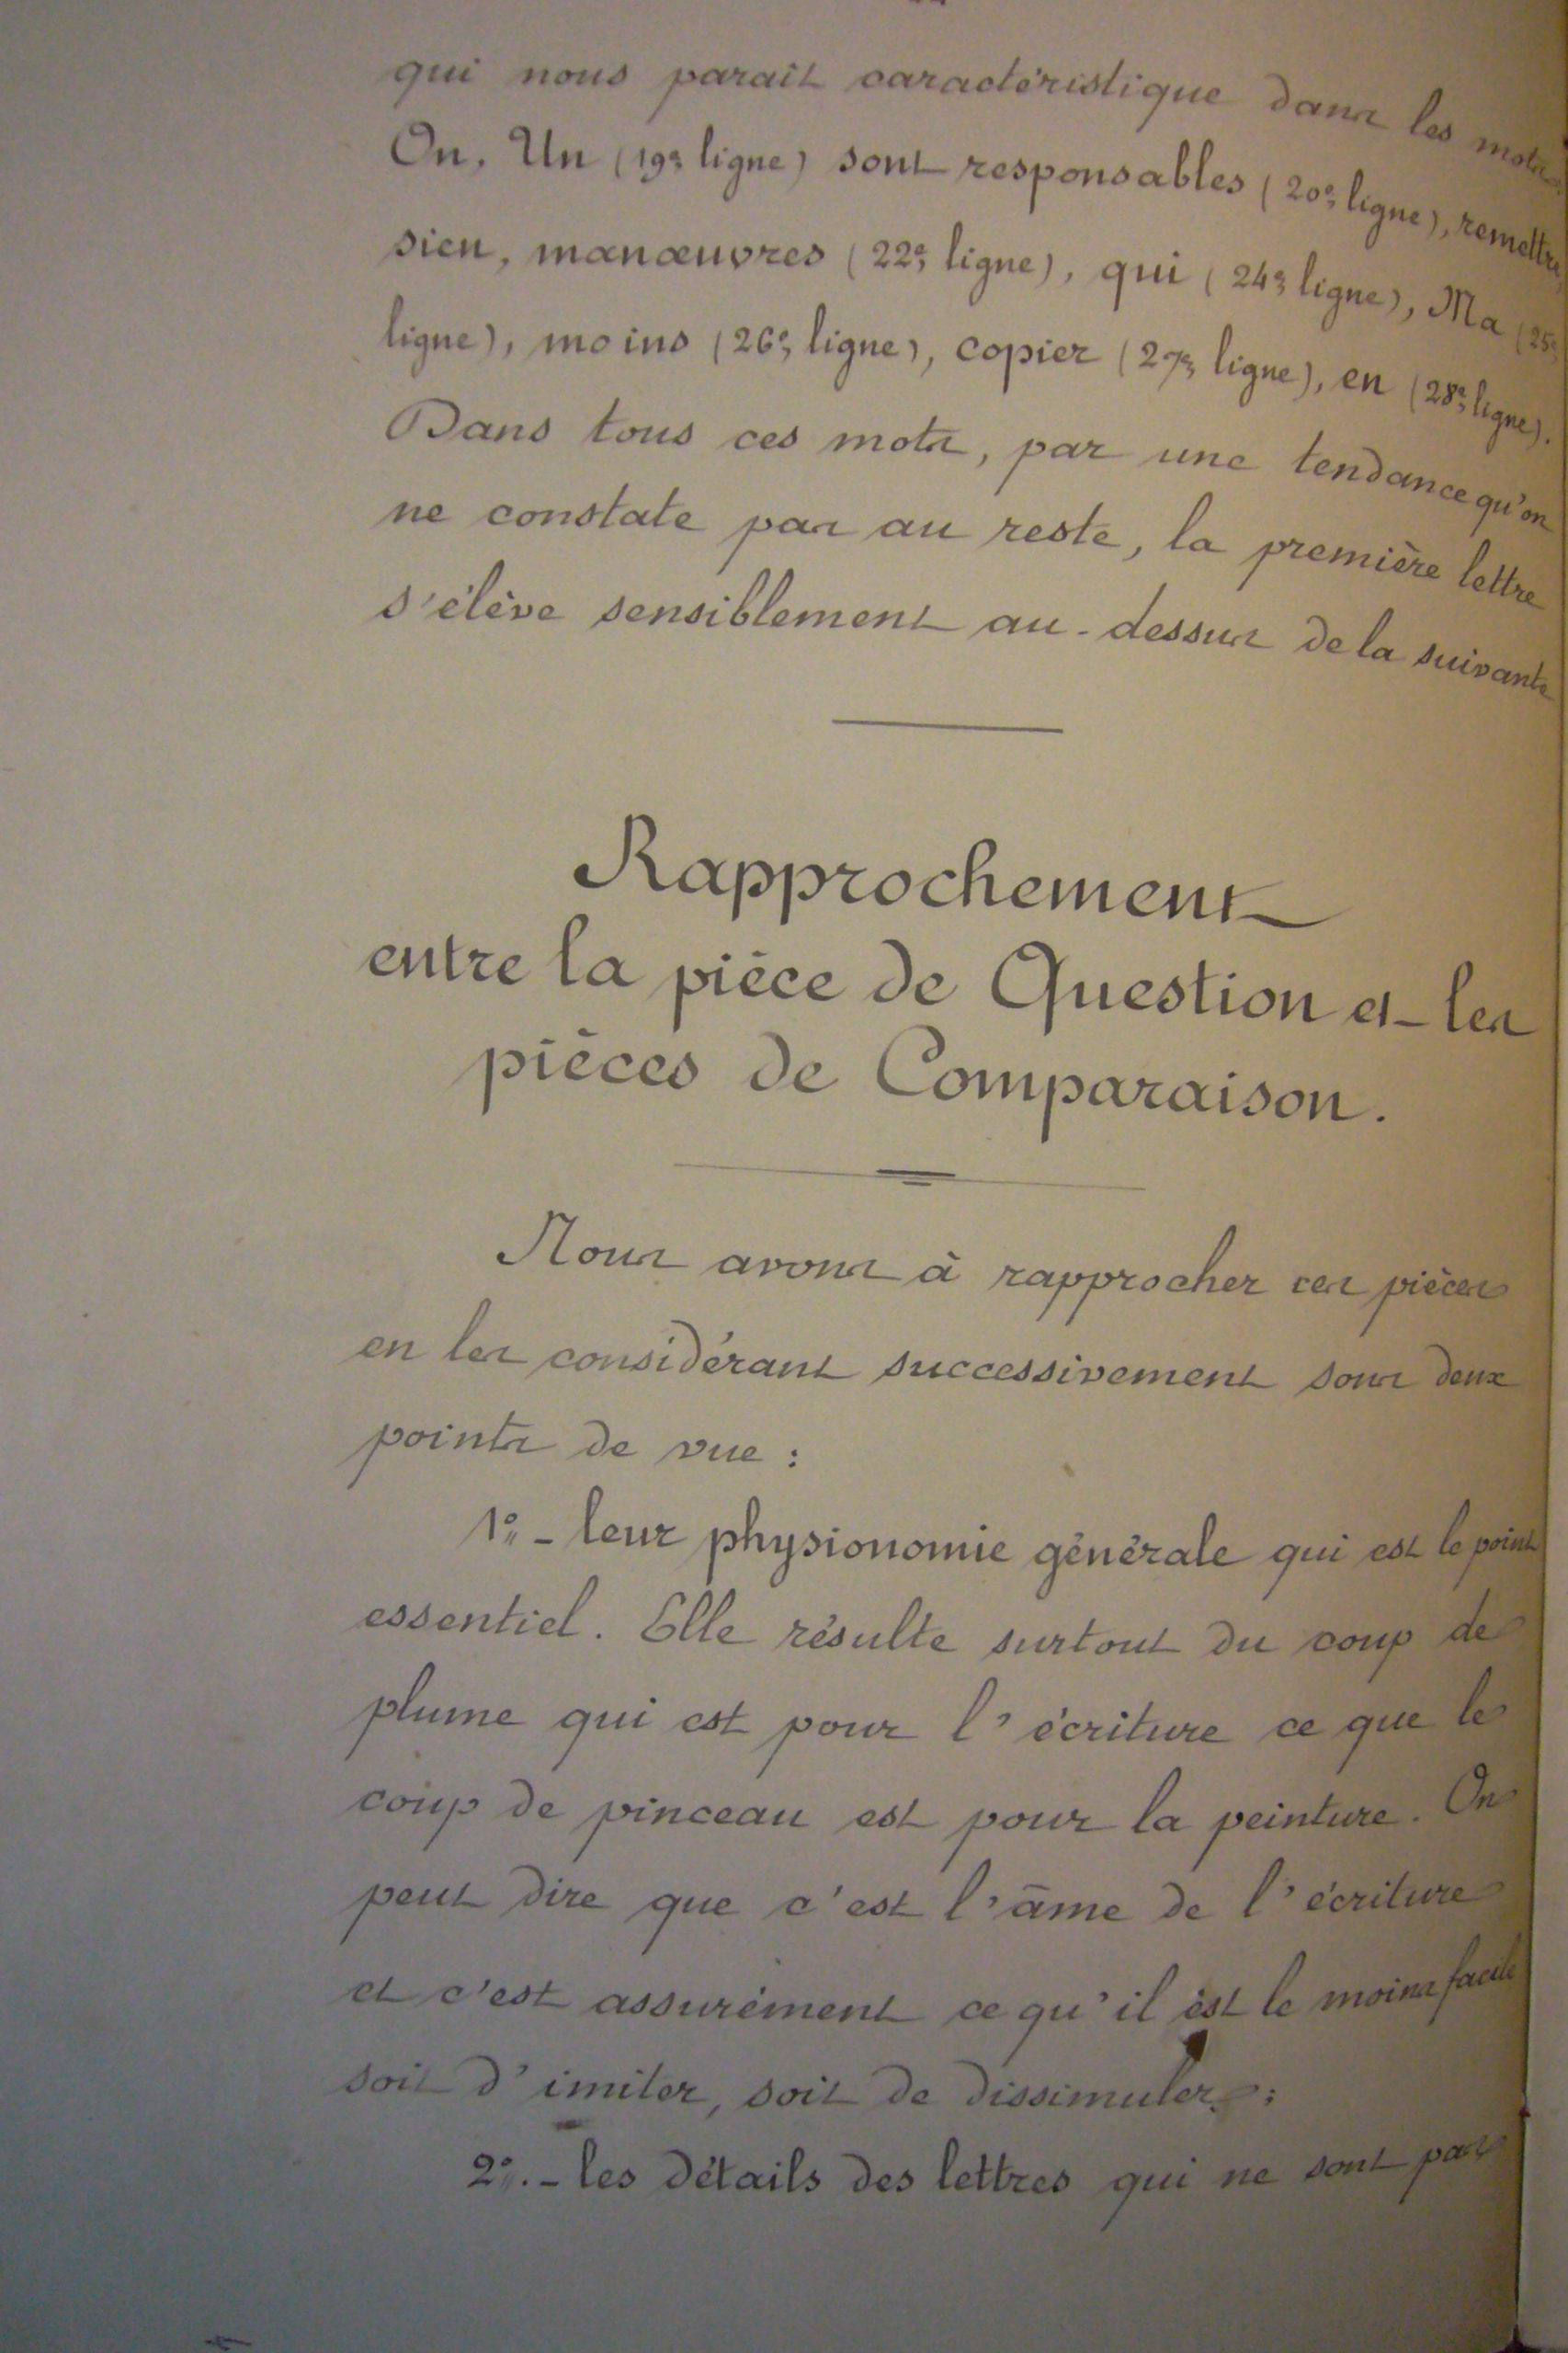 qui nous parait caractéristique dans les mots
On, Un (19e ligne) sont responsables (20e ligne), remettre,
sien, manœuvres (22e ligne), qui (24e ligne), Ma (25e
ligne), moins (26e ligne), copier (27e ligne), en (28e ligne).
Dans tous ces mots, par une tendance qu'on
ne constate pas au reste, la première lettre
s'élève sensiblement au-dessus de la suivante
Rapprochement
entre la pièce de Question et les
pièces de Comparaison.
Nous avons à rapprocher ces pièces
en les considérant successivement sous deux
points de vue :
1° - leur physionomie générale qui est le point
essentiel. Elle résulte surtout du coup de
plume qui est pour l'écriture ce que le
coup de pinceau est pour la peinture. On
peut dire que c'est l'âme de l'écriture
et c'est assurément ce qu'il est le moins facile
soit d'imiter, soit de dissimuler ;
2°. - les détails des lettres qui ne sont pas